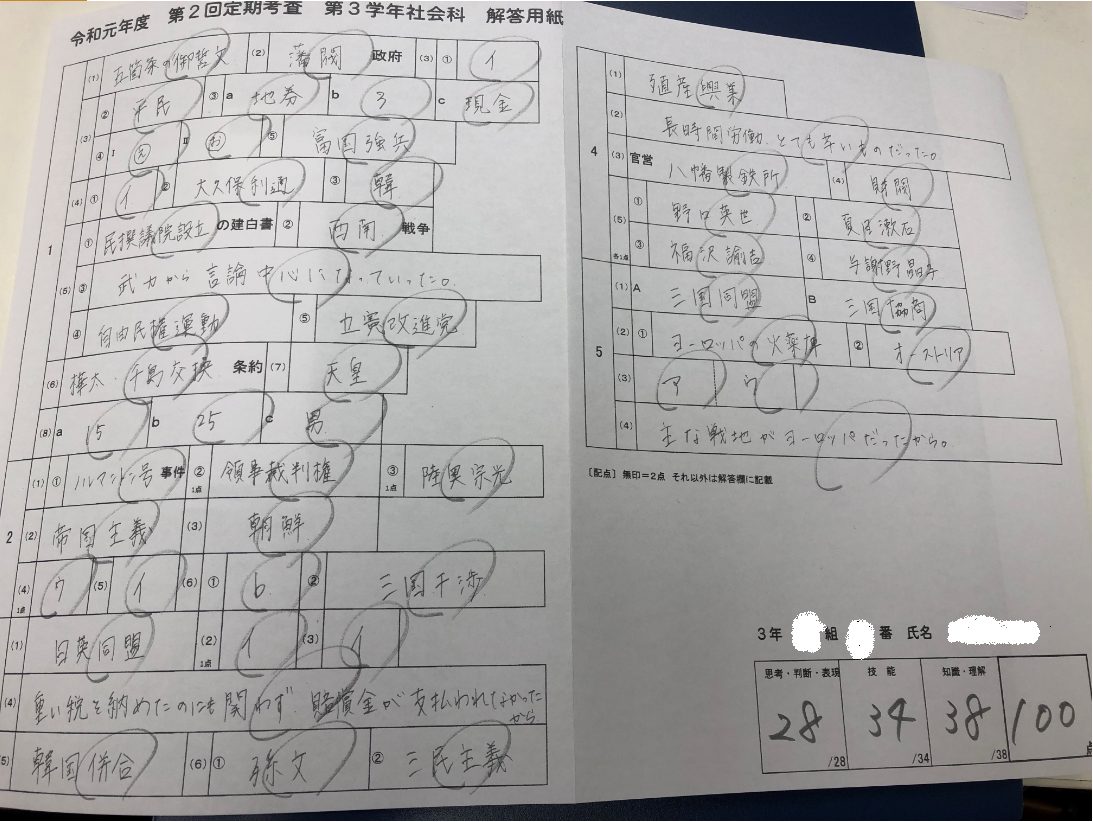 令和元年度 第2回定期考査 第3学年社会科 解答用紙
1
(1) 五箇条の御誓文 (2) 藩閥 政府 (3) ① イ
(3) ② 平民 ③ a 地券 b 3 c 現金
④ Ⅰ え Ⅱ お ⑤ 富国強兵
(4) ① イ ② 大久保利通 ③ 韓
(5) ① 民撰議院設立 の建白書 ② 西南 戦争
③ 武力から言論中心になっていった。
④ 自由民権運動 ⑤ 立憲改進党
(6) 樺太・千島交換 条約 (7) 天皇
(8) a 15 b 25 c 男
2
(1) ① ノルマントン号 事件 ② 1点 領事裁判権 ③ 1点 陸奥宗光
(2) 帝国主義 (3) 朝鮮
(4) 1点 ウ (5) イ (6) ① b ② 三国干渉
(1) 日英同盟 (2) 1点 イ (3) イ
(4) 重い税を納めたのにも関わず、賠償金が支払われなかったから
(5) 韓国併合 (6) ① 孫文 ② 三民主義
4
(1) 殖産興業
(2) 長時間労働、とても辛いものだった。
(3) 官営 八幡製鉄所 (4) 財閥
(5) 各1点 ① 野口英世 ② 夏目漱石
③ 福沢諭吉 ④ 与謝野晶子
5
(1) A 三国同盟 B 三国協商
(2) ① ヨーロッパの火薬庫 ② オーストリア
(3) ア ウ
(4) 主な戦地がヨーロッパだったから。
[配点] 無印=2点 それ以外は解答欄に記載
3年 組 番 氏名
思考・判断・表現 技能 知識・理解
28 /28 34 /34 38 /38 100 点